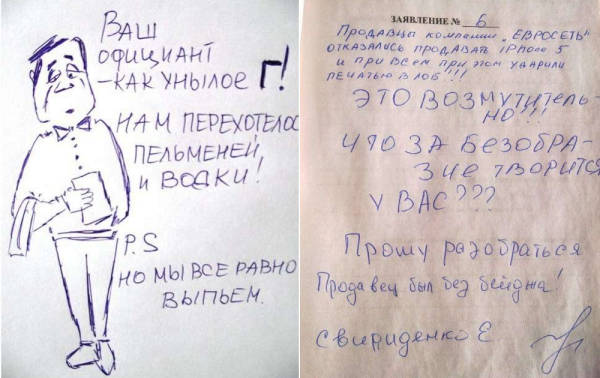 ВАШ
ОФИЦИАНТ
- КАК УНЫЛОЕ Г!
НАМ ПЕРЕХОТЕЛОС
ПЕЛЬМЕНЕЙ,
и ВОДКИ!
P.S
НО МЫ ВСЕ РАВНО
ВЫПЬЕМ.
ЗАЯВЛЕНИЕ № 6
Продавцы компании "ЕВРОСЕТЬ"
отказались продавать iPhone 5
и при всем при этом ударили
печатью в лоб!!!
ЭТО ВОЗМУТИТЕЛЬ-
НО!!!
ЧТО ЗА БЕЗОБРА-
ЗИЕ ТВОРИТСЯ
У ВАС???
Прошу разобраться
Продавец был без бейджа!
Свириденко Е